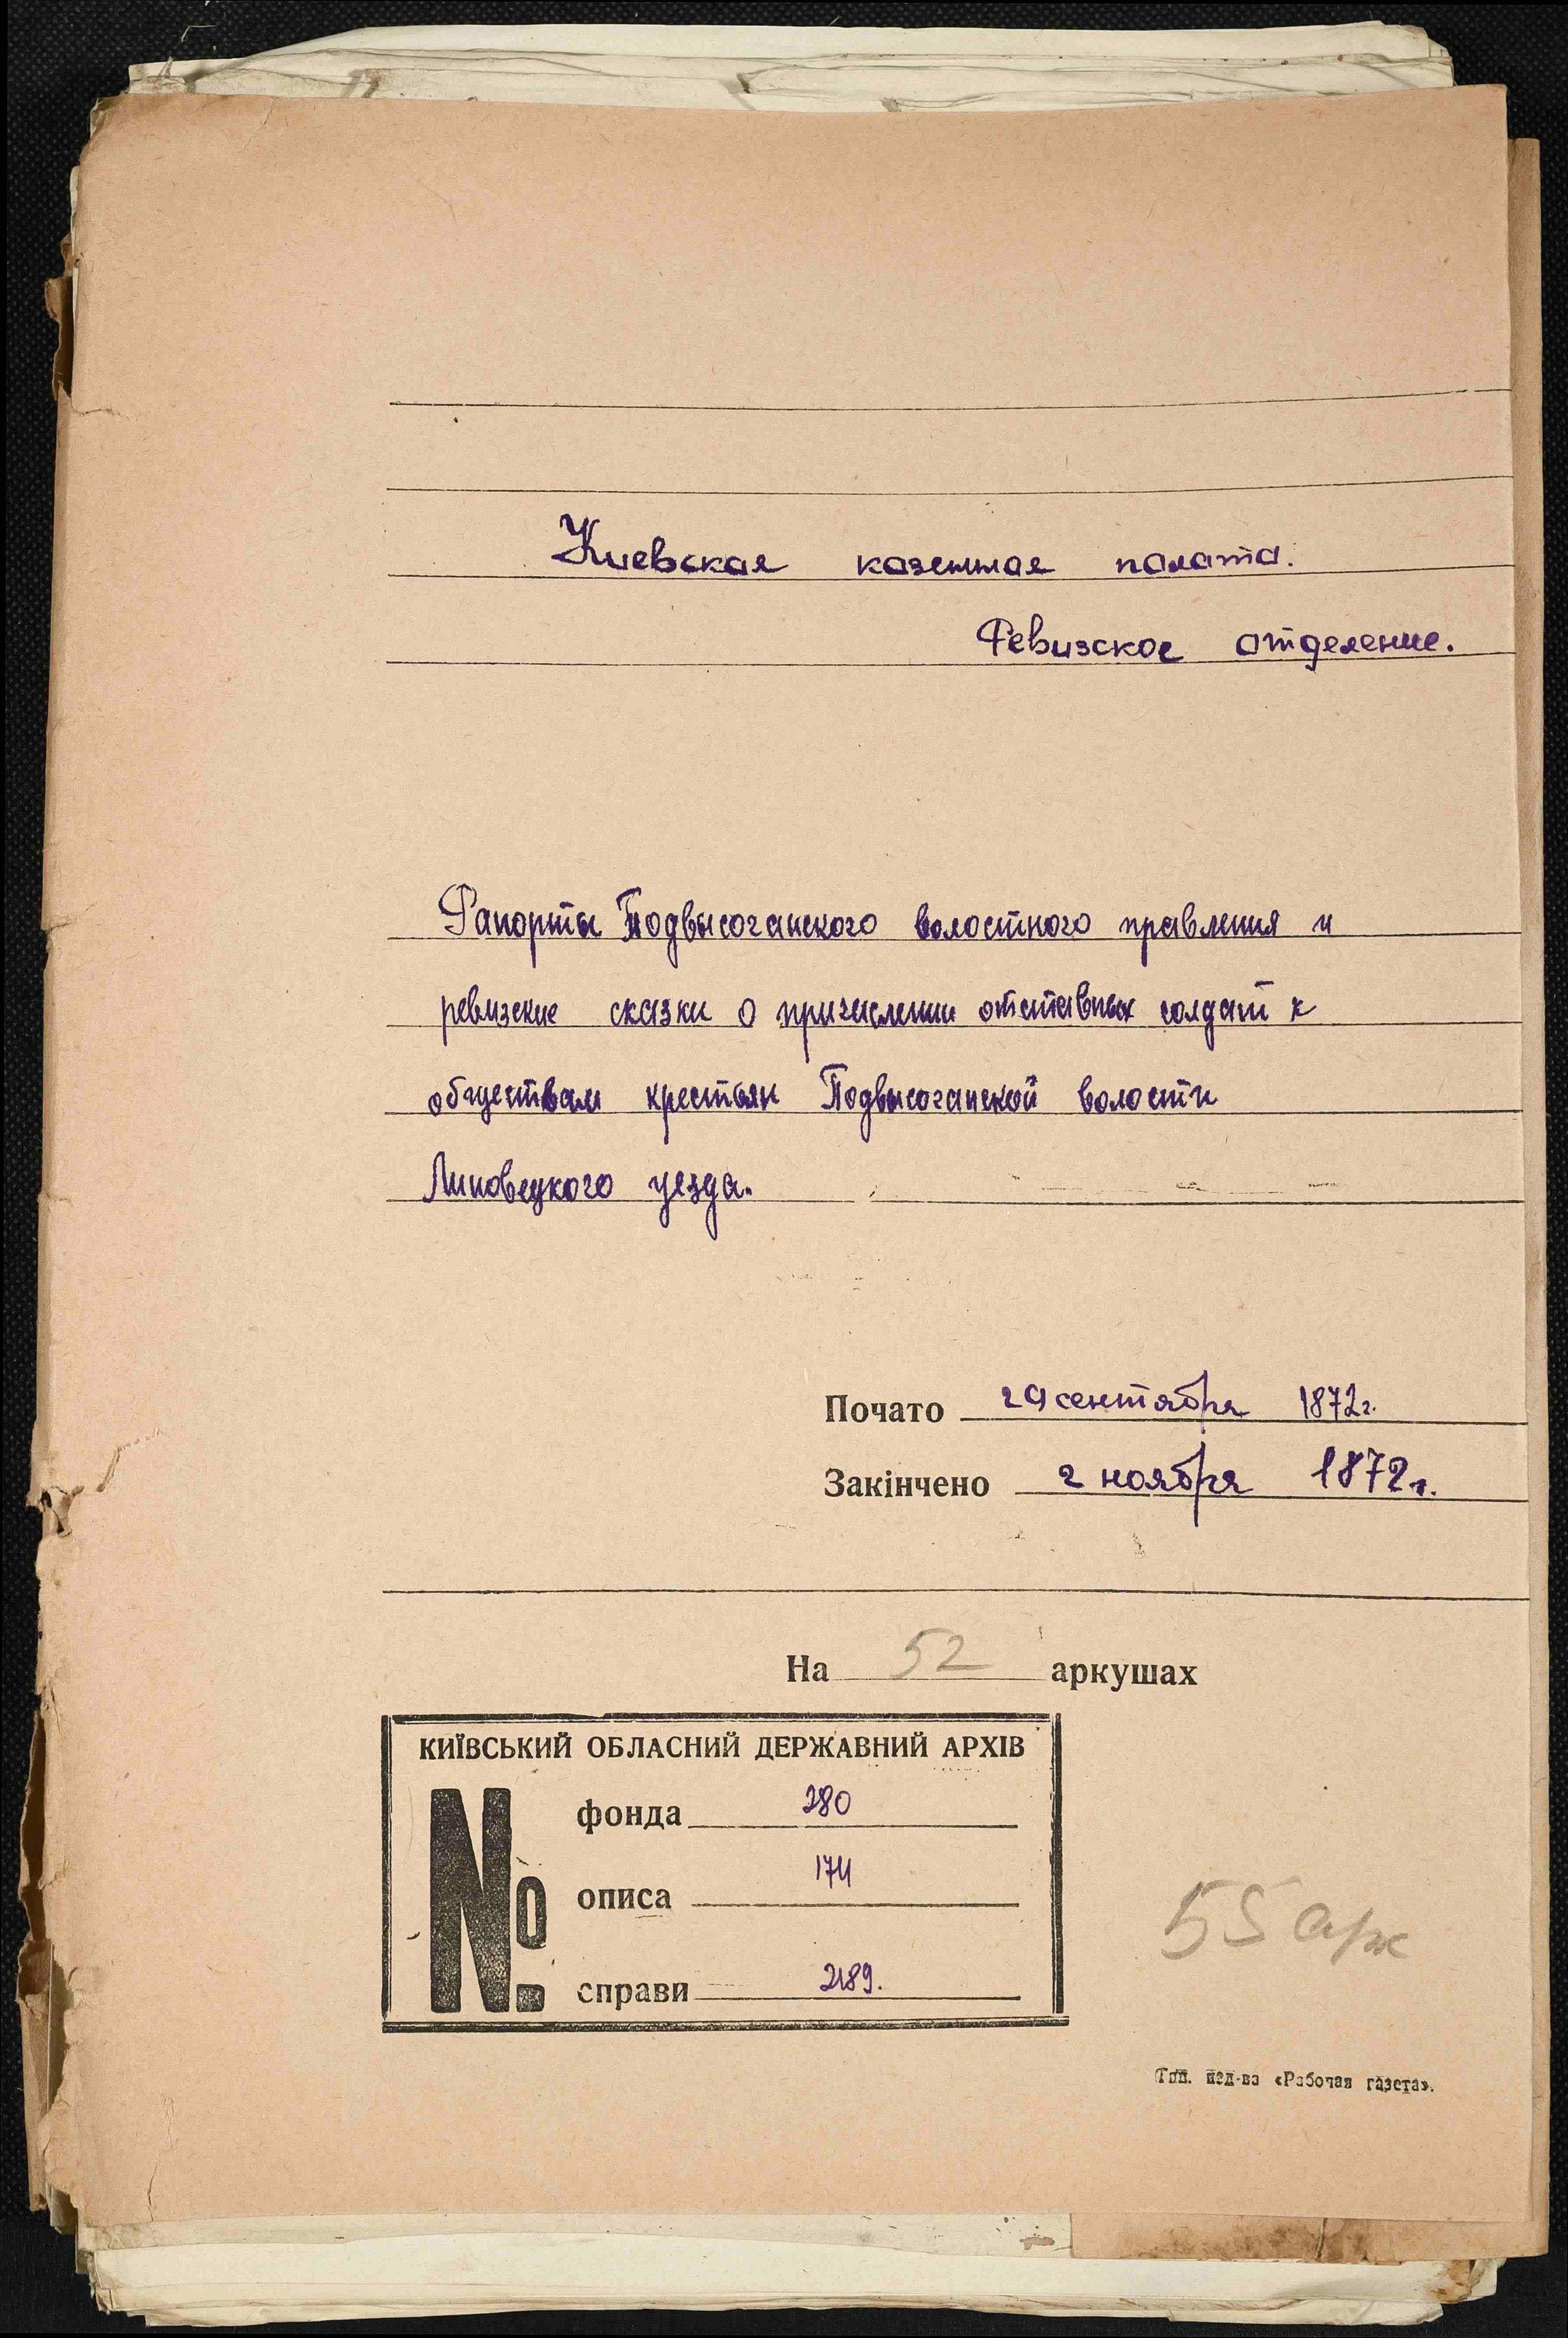 Киевская казенная палата.
Ревизское отделение.
Рапорты Подвысоцкого волостного правления и
ревизские сказки о причислении отставных солдат к
обществам крестьян Подвысочанской волости
Липовецкого уезда.
Почато 29 сентября 1872г.
Закінчено 2 ноября 1872г.
На 52 аркушах
КИЇВСЬКИЙ ОБЛАСНИЙ ДЕРЖАВНИЙ АРХІВ
№ фонда 280
описа 174
справи 2189.
55 арк
Тип. изд-ва «Рабочая газета».